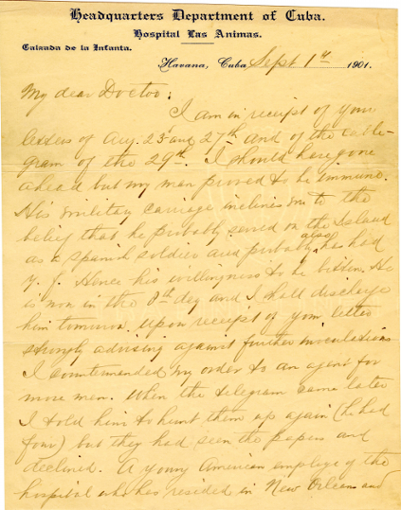 Headquarters Department of Cuba.
Hospital Las Animas.
Calzada de la Infanta.
Havana, Cuba, Sept 1st 1901.
My dear Doctor:
I am in receipt of your
letters of Aug. 23d and 27th and of the cable-
gram of the 29th. I should have gone
ahead but my man proved to be immune.
His military carriage inclines me to the
belief that he probably served on the Island
as a Spanish soldier and probably also he had
y. f. Hence his willingness to be bitten. He
is now in the 8th day and I shall discharge
him tomorrow. Upon receipt of your letter
strongly advising against further inoculations
I countermanded my order to an agent for
more men. When the telegram came later
I told him to hunt them up again (he had
four) but they had seen the papers and
declined. A young American employe of the
hospital who has resided in New Orleans and